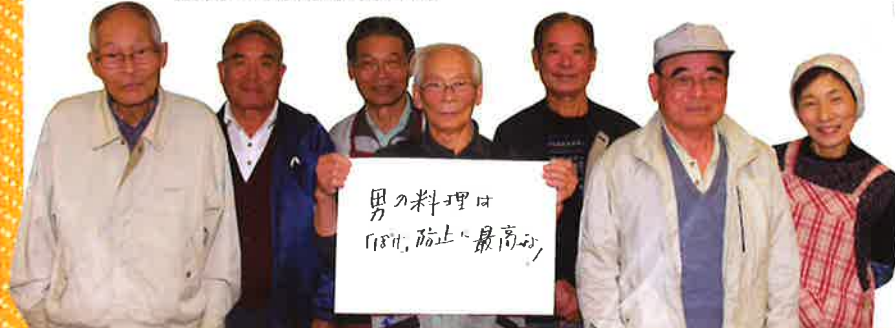 男の料理は
「ぼけ」防止に最高です